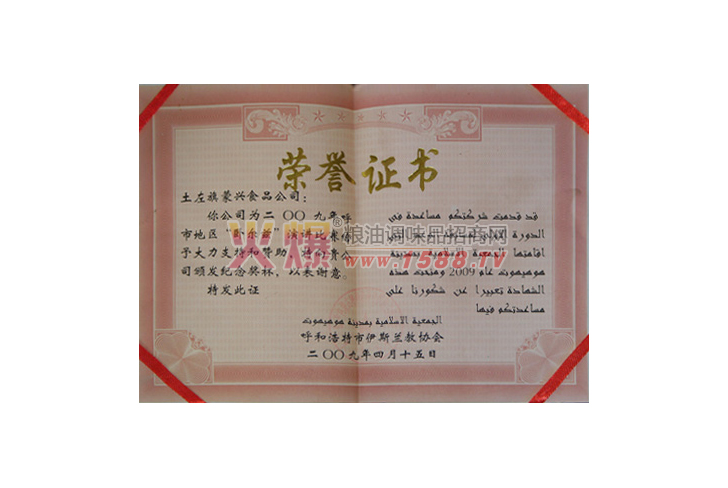 荣誉证书
土左旗蒙兴食品公司：
你公司为二〇〇九年呼
市地区“卧尔兹”演讲比赛给
予大力支持和赞助，特向贵公
司颁发纪念奖杯，以表谢意。
特发此证
قد قدمت شركتكم مساعدة في
الدورة
اقامتها الجمعية الاسلامية بمدينة
هوهيهوت عام 2009 ومنحت هذه
الشهادة تعبيرا عن شكورنا على
مساعدتكم فيها
الجمعية الاسلامية بمدينة هوهيهوت
呼和浩特市伊斯兰教协会
二〇〇九年四月十五日
火爆®粮油调味品招商网
www.1588.TV